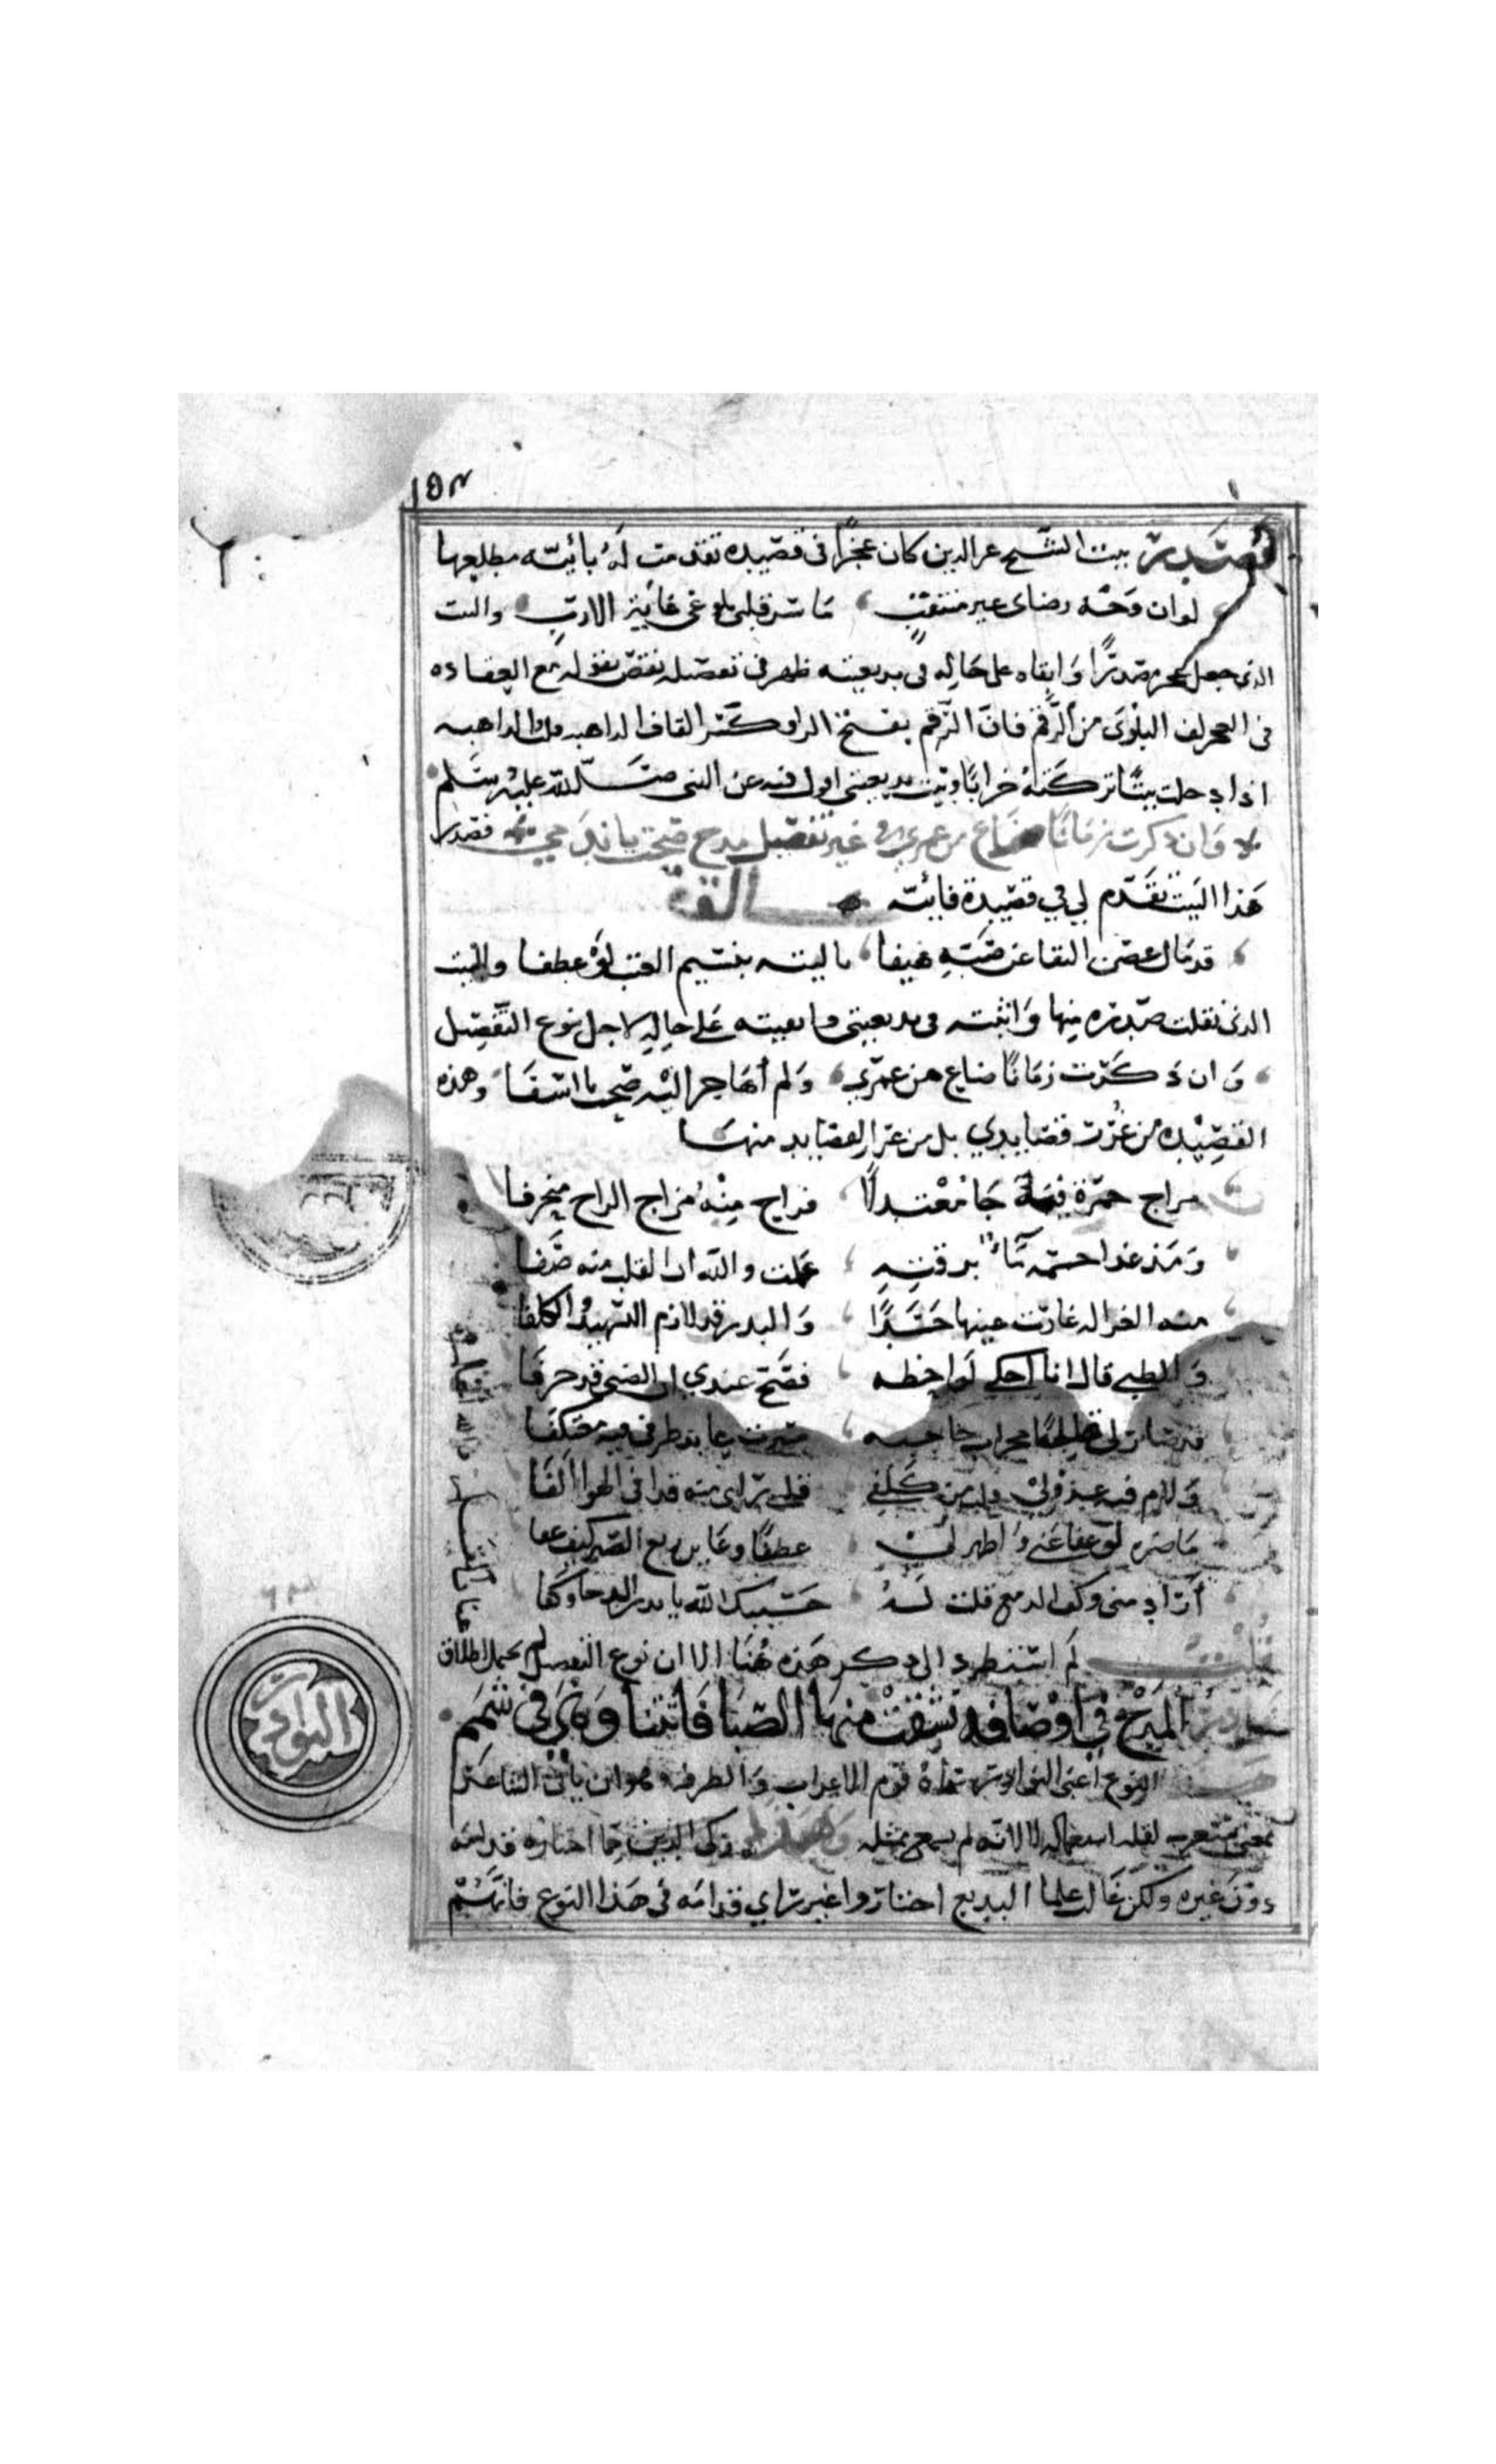 ١٥٣
فصدر بيت الشيخ عز الدين كان عجزا فى قصيده تقدمت له بائيه مطلعها
لو ان وجه رضاى غير منتقب ما سر قلبى بلوغى غاية الارب والبيت
الذى جعل عجزه صدرا وابقاه على حاله فى بديعيته ظهر فى تفصيله نقص بقوله مع العضاده
فى العجز لفى البلوى من الرقم فان الرقم بفتح الرا وكسر القاف الداهيه وتلك الداهيه
اذا دخلت بيتا تركته خرابا وبيت بديعيتى اقول فيه عن النبى صلى الله عليه وسلم
وان ذكرت زمانا ضاع من عمرى فى غير تفصيل مدح صحت يا ندمى فصدر
هذا البيت تقدم لى فى قصيدة فائيه
قد مال غصن النقا عن صبه هيفا يا ليته بنسيم العتب لو عطفا والبيت
الذى نقلت صدره منها واثبته فى بديعيتى وابقيته على حاله لاجل نوع التفصيل
وان ذكرت زمانا ضاع من عمرى ولم أهاجر اليه صحت يا اسفا وهذه
القصيده من غرر قصايدى بل من غرر القصايد منها
مزاج خمرة فيه جا معتدلا فراح منه مزاج الراح منحرفا
ومذ غدا خصمه برقته علمت والله ان القلب منه صفا
منه الغزاله غارت عينها حسدا والبدر قد لازم التسهيد والكلفا
والظبى قال انا احكى لواحظه فصح عندى ان الضبى قد خرفا
قد صار لى محراب حاجبه صرت عابد طرفى فيه معتكفا
ولام فيه عذولى كلفى فى الهوا الفا
ما ضره لو عفا عنى واظهر لى عطفا وعن ربع الصبر كيف عفا
أراد منى وكف الدمع قلت له حسيبك الله يا بدر الدجا وكفا
قلت لم استطرد الى ذكر هذه هنا الا ان نوع التفصيل لم يحمل اطلاق
نوادر المدح فى اوصافه نشقت منها الصبا فأتتنا وهى فى شمم
هذا النوع أعنى النوادر سماه قوم الاغراب والطرفه وهو ان ياتى الشاعر
بمعنى مستغرب لقلة استعماله لا لانه لم يسمع بمثله وهذا زكى الدين مما اختاره قدامه
دون غيره ولكن غالب علما البديع اختاروا غير راي قدامه فى هذا النوع فانهم
النوادر